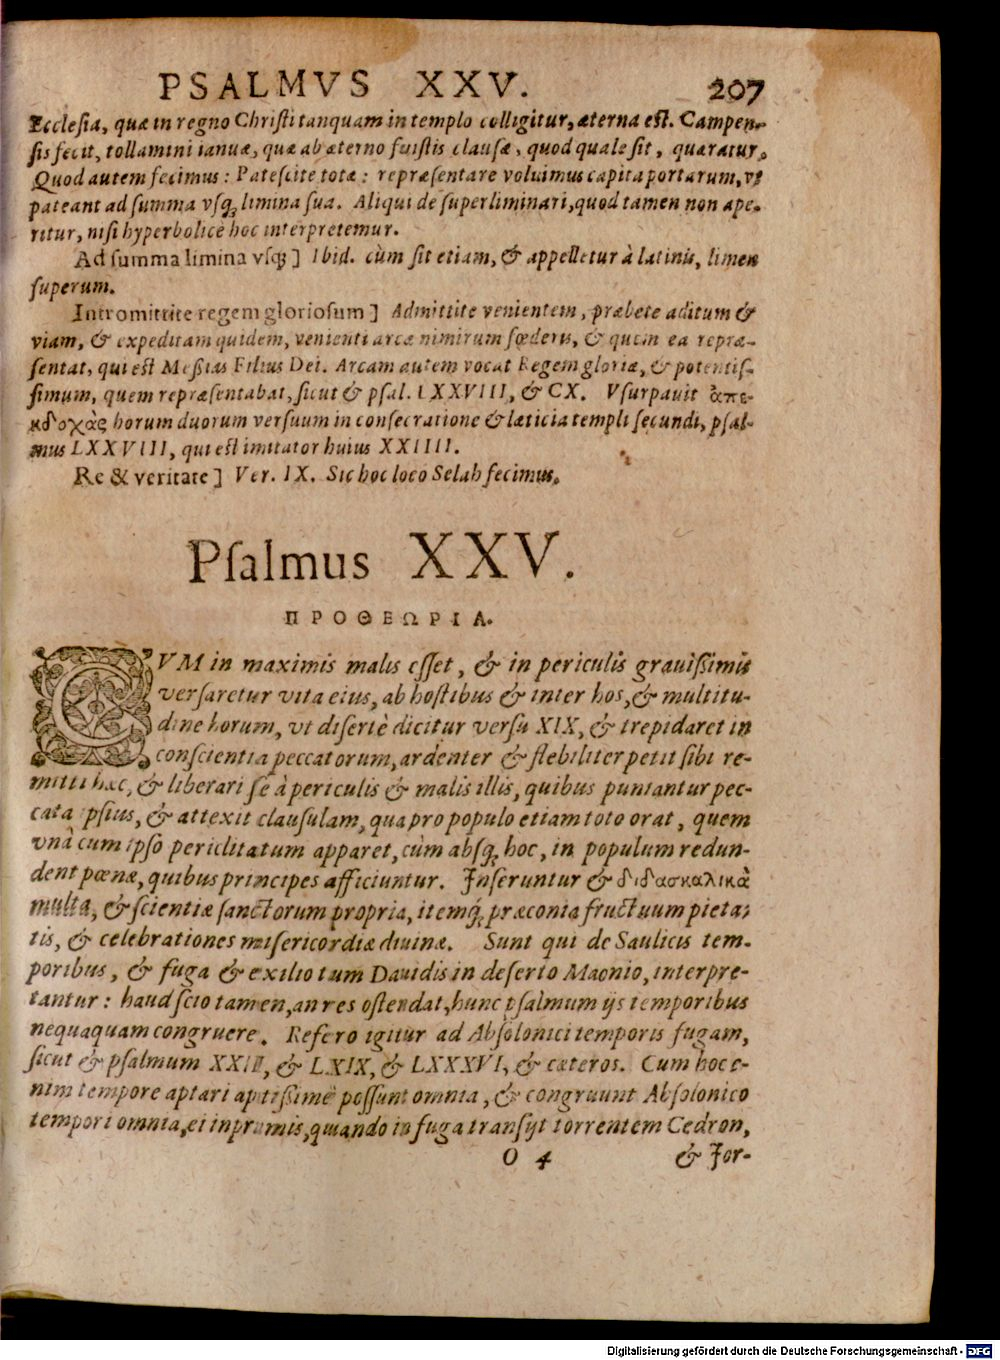 PSALMVS XXV. 207
Ecclesia, quæ in regno Christi tanquam in templo colligitur, æterna est. Campen-
sis fecit, tollamini ianuæ, quæ ab æterno fuistis clausæ, quod quale sit, quæratur.
Quod autem fecimus: Patescite totæ: repræsentare voluimus capita portarum, vt
pateant ad summa vsq; limina sua. Aliqui de superliminari, quod tamen non ape-
ritur, nisi hyperbolicè hoc interpretemur.
Ad summa limina vsq;] Ibid. cùm sit etiam, & appelletur à latinis, limen
superum.
Intromittite regem gloriosum] Admittite venientem, præbete aditum &
viam, & expeditam quidem, venienti arcæ nimirum fœderis, & quem ea repræ-
sentat, qui est Messias Filius Dei. Arcam autem vocat Regem gloriæ, & potentis-
simum, quem repræsentabat, sicut & psal. LXXVIII, & CX. Vsurpauit ἀπε-
κδοχὰς horum duorum versuum in consecratione & læticia templi secundi, psal-
mus LXXVIII, qui est imitator huius XXIIII.
Re & veritate] Ver. IX. Sic hoc loco Selah fecimus.
Psalmus XXV.
ΠΡΟΘΕΩΡΙΑ.
CVM in maximis malis esset, & in periculis grauissimis
versaretur vita eius, ab hostibus & inter hos, & multitu-
dine horum, vt disertè dicitur versu XIX, & trepidaret in
conscientia peccatorum, ardenter & flebiliter petit sibi re-
mitti hæc, & liberari se à periculis & malis illis, quibus puniantur pec-
cata ipsius, & attexit clausulam, qua pro populo etiam toto orat, quem
vnà cum ipso periclitatum apparet, cùm absq; hoc, in populum redun-
dent pœnæ, quibus principes afficiuntur. Inseruntur & διδασκαλικὰ
multa, & scientiæ sanctorum propria, itemq; præconia fructuum pieta-
tis, & celebrationes misericordiæ diuinæ. Sunt qui de Saulicis tem-
poribus, & fuga & exilio tum Dauidis in deserto Maonio, interpre-
tantur: haud scio tamen, an res ostendat, hunc psalmum ijs temporibus
nequaquam congruere. Refero igitur ad Absolonici temporis fugam,
sicut & psalmum XXIII, & LXIX, & LXXXVI, & cæteros. Cum hoc e-
nim tempore aptari aptissimè possunt omnia, & congruunt Absolonico
tempori omnia, ei inprimis, quando in fuga transijt torrentem Cedron,
O 4 & Jor-
Digitalisierung gefördert durch die Deutsche Forschungsgemeinschaft - DFG